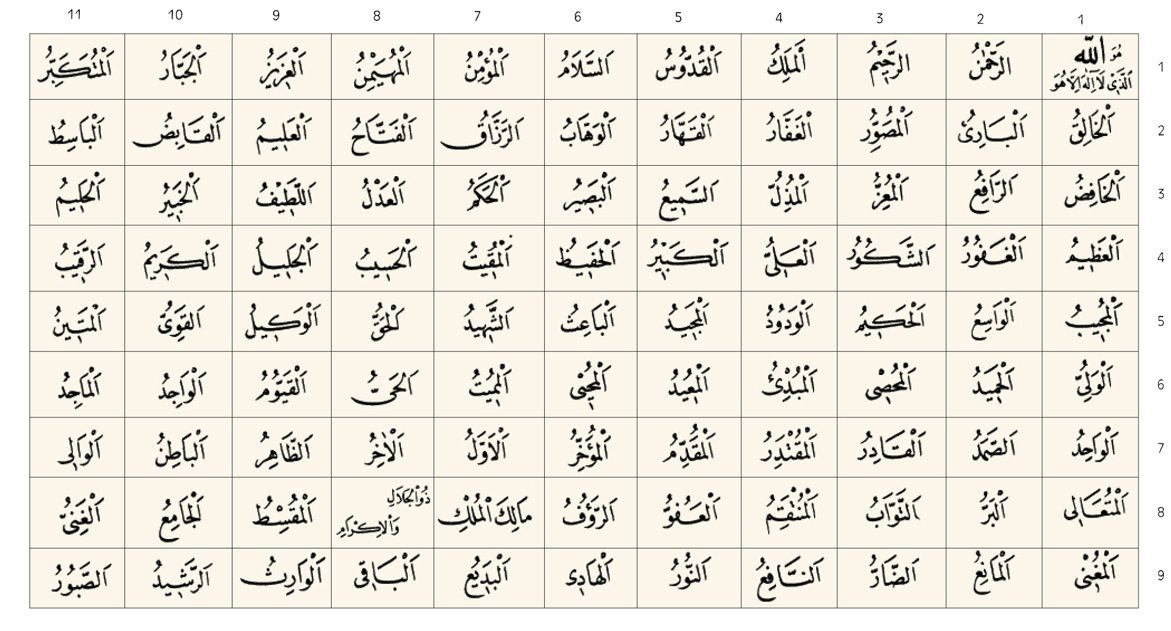 11 10 9 8 7 6 5 4 3 2 1
هُوَ اللّٰه الَّذٖي لَا اِلٰهَ اِلَّا هُوَ اَلرَّحْمٰنُ اَلرَّحٖيمُ اَلْمَلِكُ اَلْقُدُّوسُ اَلسَّلَامُ اَلْمُؤْمِنُ اَلْمُهَيْمِنُ اَلْعَزٖيزُ اَلْجَبَّارُ اَلْمُتَكَبِّرُ 1
اَلْخَالِقُ اَلْبَارِئُ اَلْمُصَوِّرُ اَلْغَفَّارُ اَلْقَهَّارُ اَلْوَهَّابُ اَلرَّزَّاقُ اَلْفَتَّاحُ اَلْعَلٖيمُ اَلْقَابِضُ اَلْبَاسِطُ 2
اَلْخَافِضُ اَلرَّافِعُ اَلْمُعِزُّ اَلْمُذِلُّ اَلسَّمٖيعُ اَلْبَصٖيرُ اَلْحَكَمُ اَلْعَدْلُ اَللَّطٖيفُ اَلْخَبٖيرُ اَلْحَلٖيمُ 3
اَلْعَظٖيمُ اَلْغَفُورُ اَلشَّكُورُ اَلْعَلِىُّ اَلْكَبٖيرُ اَلْحَفٖيظُ اَلْمُقٖيتُ اَلْحَسٖيبُ اَلْجَلٖيلُ اَلْكَرٖيمُ اَلرَّقٖيبُ 4
اَلْمُجٖيبُ اَلْوَاسِعُ اَلْحَكٖيمُ اَلْوَدُودُ اَلْمَجٖيدُ اَلْبَاعِثُ اَلشَّهٖيدُ اَلْحَقُّ اَلْوَكٖيلُ اَلْقَوِىُّ اَلْمَتٖينُ 5
اَلْوَلِىُّ اَلْحَمٖيدُ اَلْمُحْصٖى اَلْمُبْدِئُ اَلْمُعٖيدُ اَلْمُحْيٖى اَلْمُمٖيتُ اَلْحَىُّ اَلْقَيُّومُ اَلْوَاجِدُ اَلْمَاجِدُ 6
اَلْوَاحِدُ اَلصَّمَدُ اَلْقَادِرُ اَلْمُقْتَدِرُ اَلْمُقَدِّمُ اَلْمُؤَخِّرُ اَلْاَوَّلُ اَلْاٰخِرُ اَلظَّاهِرُ اَلْبَاطِنُ اَلْوَالٖى 7
اَلْمُتَعَالٖى اَلْبَرُّ اَلتَّوَّابُ اَلْمُنْتَقِمُ اَلْعَفُوُّ اَلرَّؤُفُ مَالِكَ الْمُلْكِ ذُو الْجَلَالِ وَالْاِكْرَامِ اَلْمُقْسِطُ اَلْجَامِعُ اَلْغَنِىُّ 8
اَلْمُغْنٖى اَلْمَانِعُ اَلضَّارُّ اَلنَّافِعُ اَلنُّورُ اَلْهَادٖى اَلْبَدٖيعُ اَلْبَاقٖى اَلْوَارِثُ اَلرَّشٖيدُ اَلصَّبُورُ 9